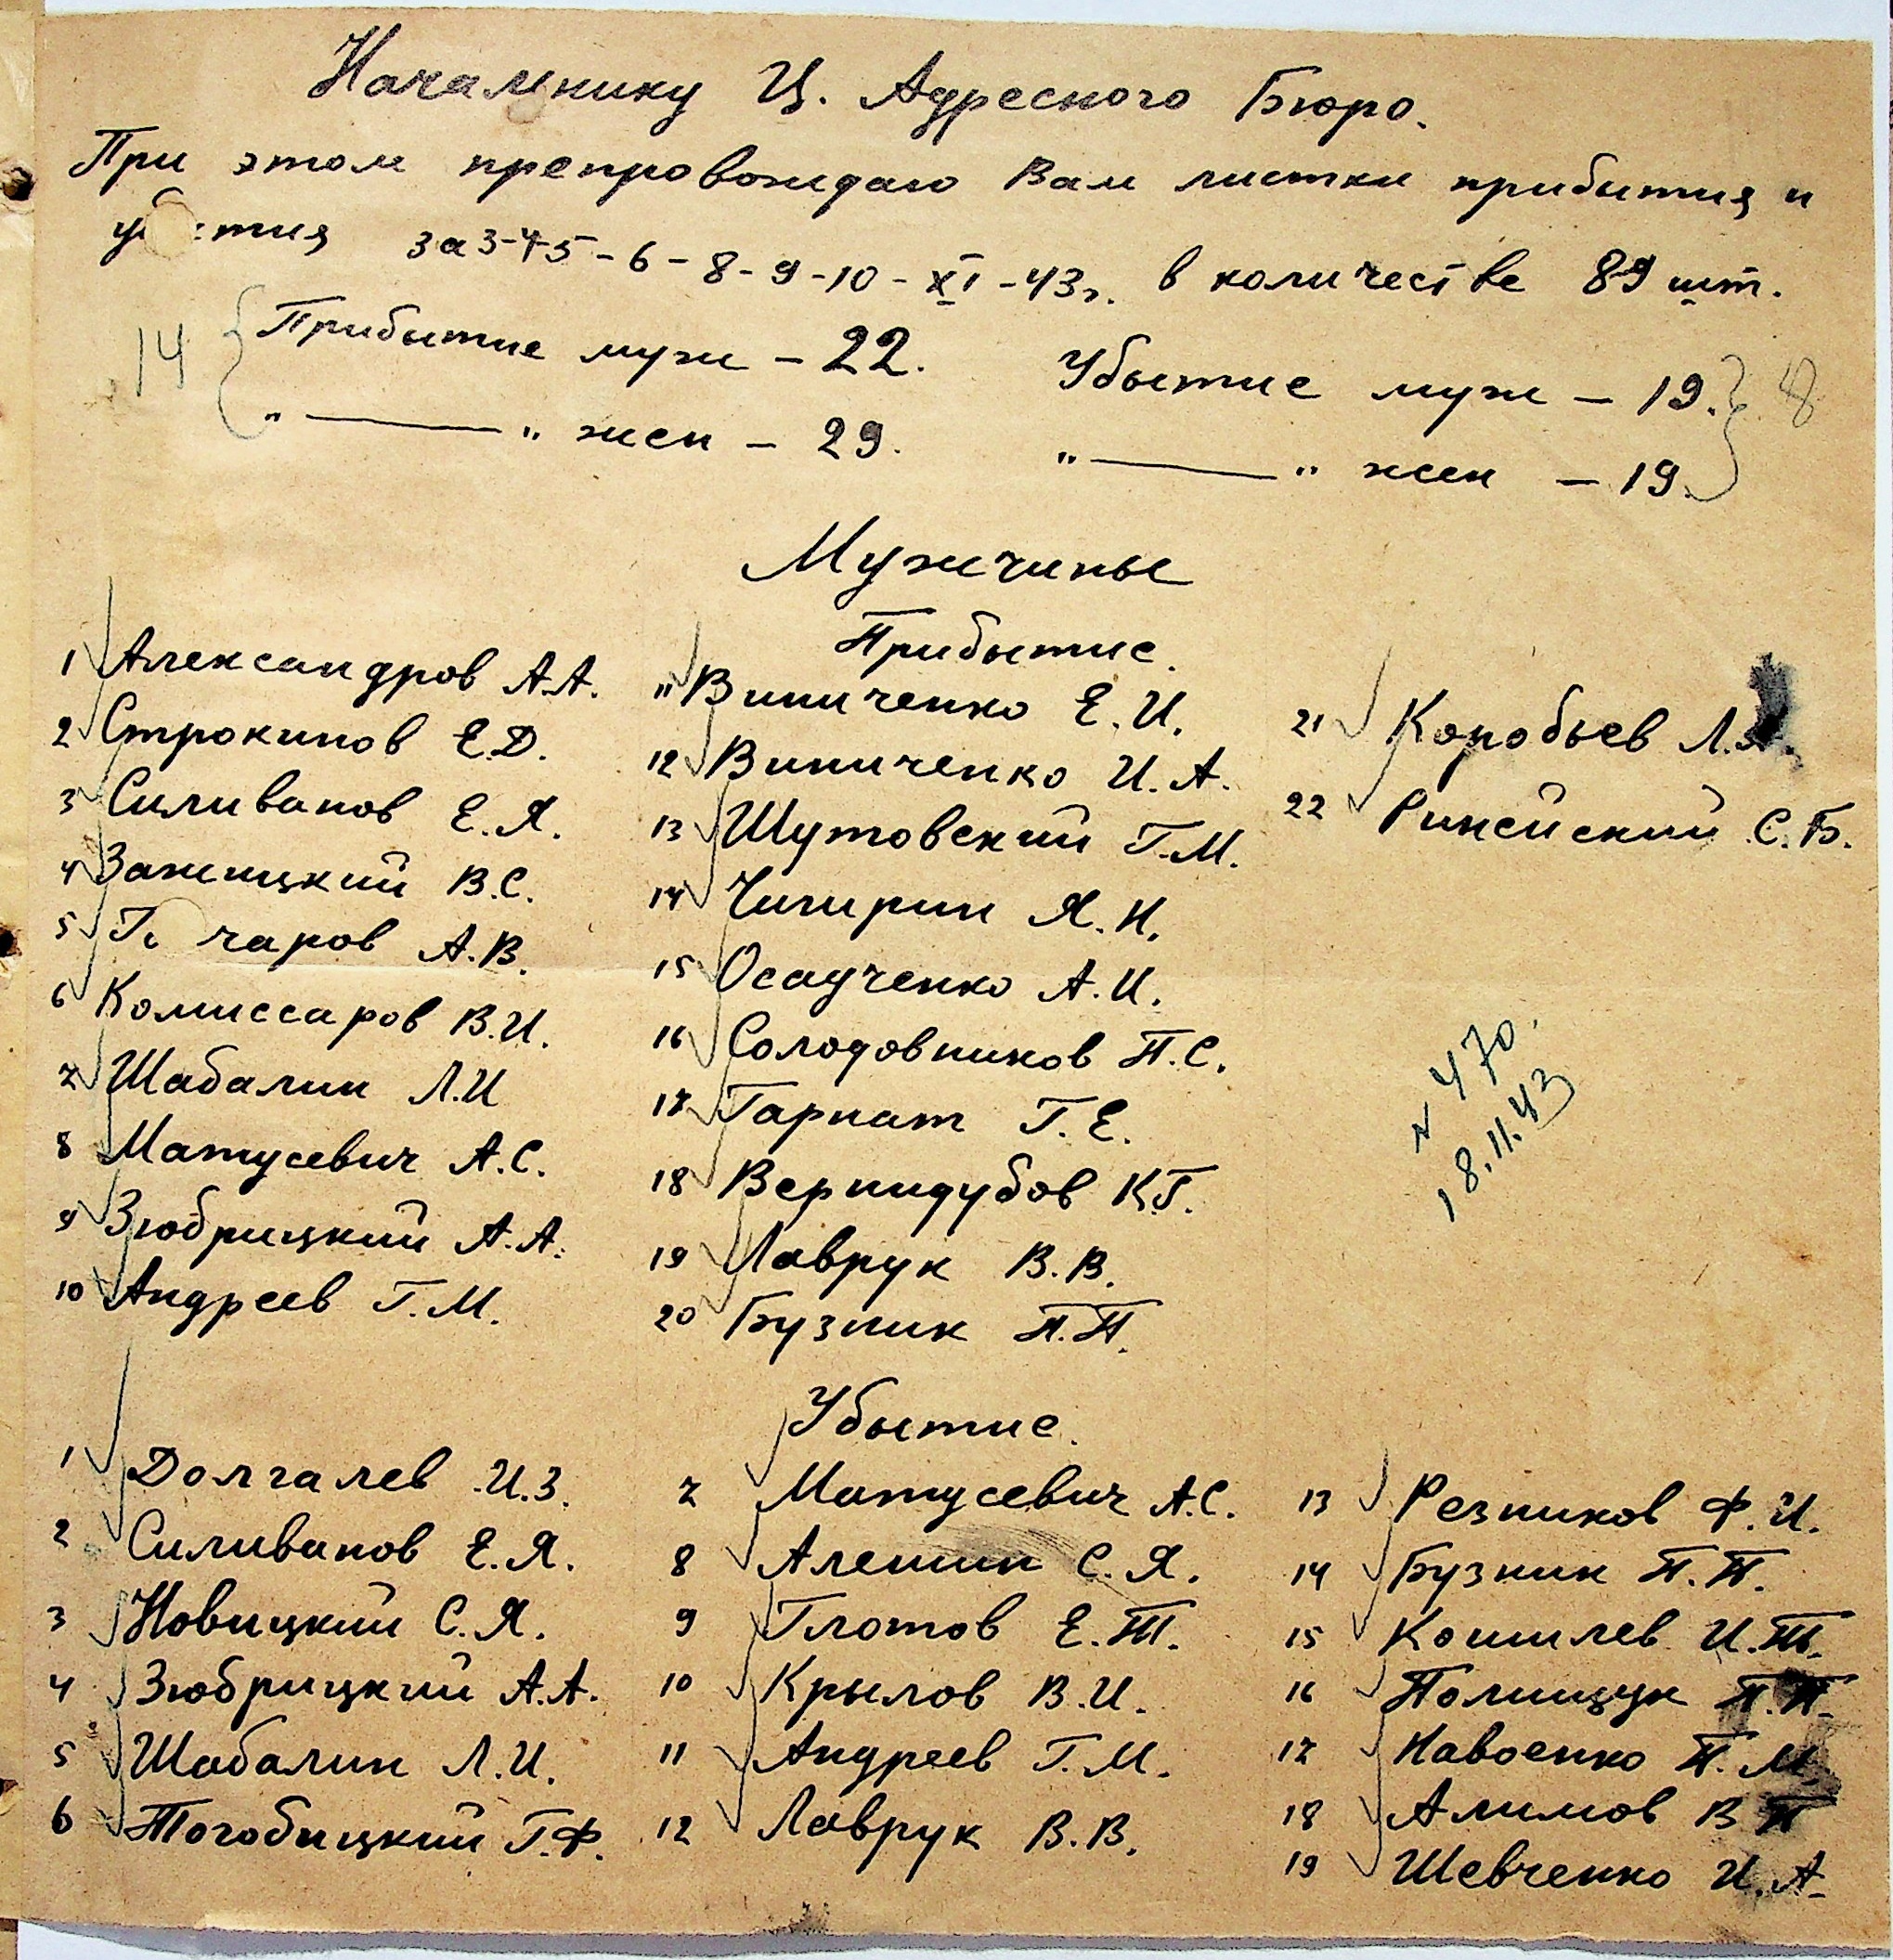 Начальнику Ц. Адресного Бюро.
При этом препровождаю Вам листки прибытия и
за 3-4-5-6-8-9-10-XI-43г. в количестве 89 шт.
14 Прибытие муж - 22. Убытие муж - 19.
" — " жен - 29. " — " жен - 19.
Мужчины
Прибытие.
1 Александров А.А.
2 Строкинов Е.Д.
3 Силиванов Е.Я.
4 Зажицкий В.С.
5 А.В.
6 Комиссаров В.И.
7 Шабалин Л.И
8 Матусевич А.С.
9 Зюбрицкий А.А.
10 Андреев Г.М.
11 Виниченко Е.И.
12 Виниченко И.А.
13 Шутовский Г.М.
14 Чигирин Я.Н.
15 Осадченко А.И.
16 Солодовников П.С.
17 Гарнат Г.Е.
18 Вернидубов К.Г.
19 Лаврук В.В.
20 Бузник П.П.
21 Коробьев Л.
22 Ринейский С.Б.
№ 470.
18.11.43
Убытие.
1 Долгалев И.З.
2 Силиванов Е.Я.
3 Новицкий С.Я.
4 Зюбрицкий А.А.
5 Шабалин Л.И.
6 Тогобицкий Г.Ф.
7 Матусевич А.С.
8 Алешин С.Я.
9 Глотов Е.Т.
10 Крылов В.И.
11 Андреев Г.М.
12 Лаврук В.В.
13 Резников Ф.И.
14 Бузник П.П.
15 Кошилев И.Т.
16 Полищук П.П.
17 Навоенко П.М.
18 Алимов В П
19 Шевченко И.А.